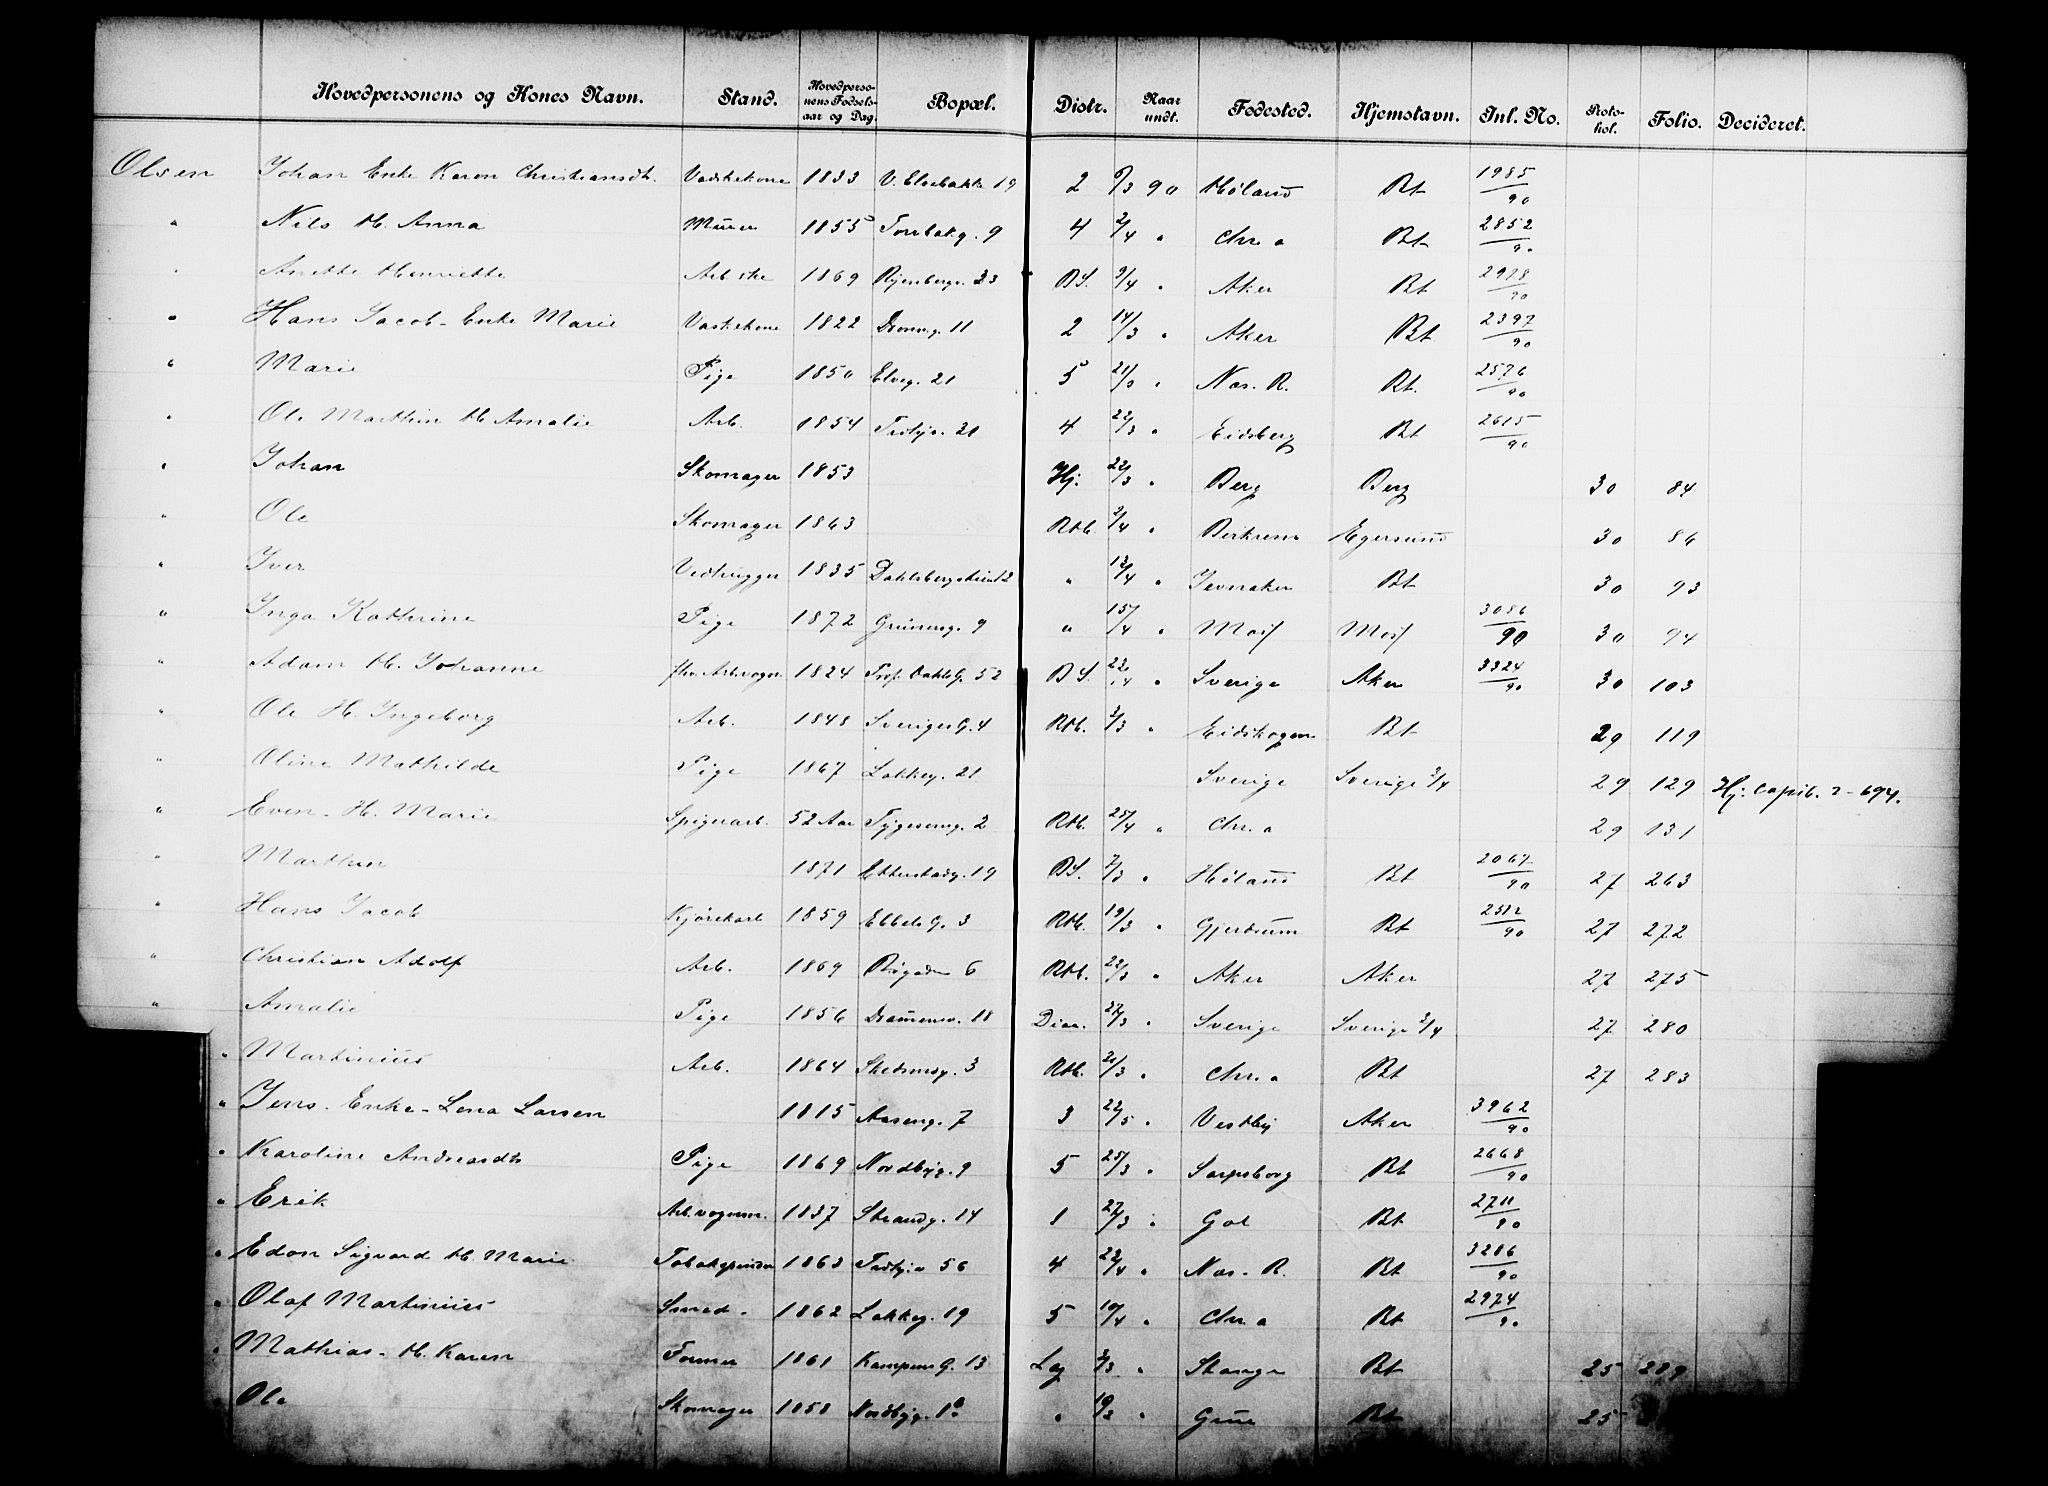 Hovedpersonens og Kones Navn. Stand. Hovedperso-nens Fødsels-aar og Dag. Bopæl. Distr. Naar undt. Fødested. Hjemstavn. Inl. No. Proto-kol. Folio. Decideret.
Olsen Johan Enke Karen Christiansdt. Vaskekone 1833 V. Elvebakke 19 2 9/3 90 Høland Bt 1985/90
" Nils H. Anna Murer 1855 Torvbakg. 9 4 2/4 " Chr.a Bt 2852/90
" Anette Henriette Arbske 1869 23 BS. 9/4 " Aker Bt 2978/90
" Hans Jacob - Enke Marie Vaskekone 1822 Dronng. 11 2 14/3 " Aker Bt 2397/90
" Marie Pige 1850 Elveg. 21 5 21/3 " Næs. R. Bt. 2576/90
" Ole Marthin H. Amalie Arb. 1854 Toftg. 21 4 22/3 " Eidsberg Bt 2615/90
" Johan Skomager 1853 Hj. 22/3 " Berg Berg 30 84
" Ole Skomager 1863 Rtb. 2/4 " Birkrem Egersund 30 86
" Iver Vedhugger 1835 Dahlsbergstien 12 " 12/4 " Jevnaker Bt 30 93
" Inga Kathrine Pige 1872 Grünersg. 9 " 15/4 " Moss Moss 3086/90 30 94
" Adam H. Johanne fhv. Arb.vogn. 1824 Prof. Dahls G. 52 BS. 22/4 " Sverige Aker 3324/90 30 103
" Ole H. Ingeborg Arb. 1848 Sveriges G. 4 Rtb. 3/3 " Eidskogen Bt 29 119
" Oline Mathilde Pige 1867 Lakkeg. 21 Sverige Sverige 3/4 29 129 Hj. Copib. 2 - 694.
" Even - H. Marie Spigerarb. 52 Aar Tygesensg. 2 Rtb. 25/4 " Chr.a 29 131
" Marthin 1871 Etterstadg. 19 BS. 7/3 " Høland Bt 2067/90 27 263
" Hans Jacob Kjørekarl 1859 Ebbels G. 3 Rtb. 19/3 " Gjerdrum Bt 2512/90 27 272
" Christian Adolf Arb. 1869 Bøgaden 6 Rtb. 22/3 " Aker Aker 27 275
" Amalie Pige 1856 Drammensv. 18 Diac. 27/3 " Sverige Sverige 3/4 27 280
" Martinius Arb. 1864 Skedsmog. 3 Rtb. 21/3 " Chr.a Bt 27 283
" Jens - Enke - Lena Larsen 1815 Aaseng. 7 3 22/5 " Vestby Aker 3962/90
" Karoline Andreasdt. Pige 1869 Nordbyg. 9 5 25/3 " Sarpsborg Bt 2668/90
" Erik Arb.vognm. 1837 Strandg. 14 1 27/3 " Gol Bt 2711/90
" Edon Sigvard H. Marie Tobakspinder 1863 Toftg. 56 4 22/4 " Næs. R. Bt 3286/90
" Olaf Martinius Smed. 1862 Lakkeg. 19 5 10/4 " Chr.a Bt 2974/90
" Mathias - H. Karen Former 1861 Kampens G. 13 Lag 3/3 " Stange Bt 25 289
" Ole Skomager 1858 Nordbyg. " " Grue Bt 25